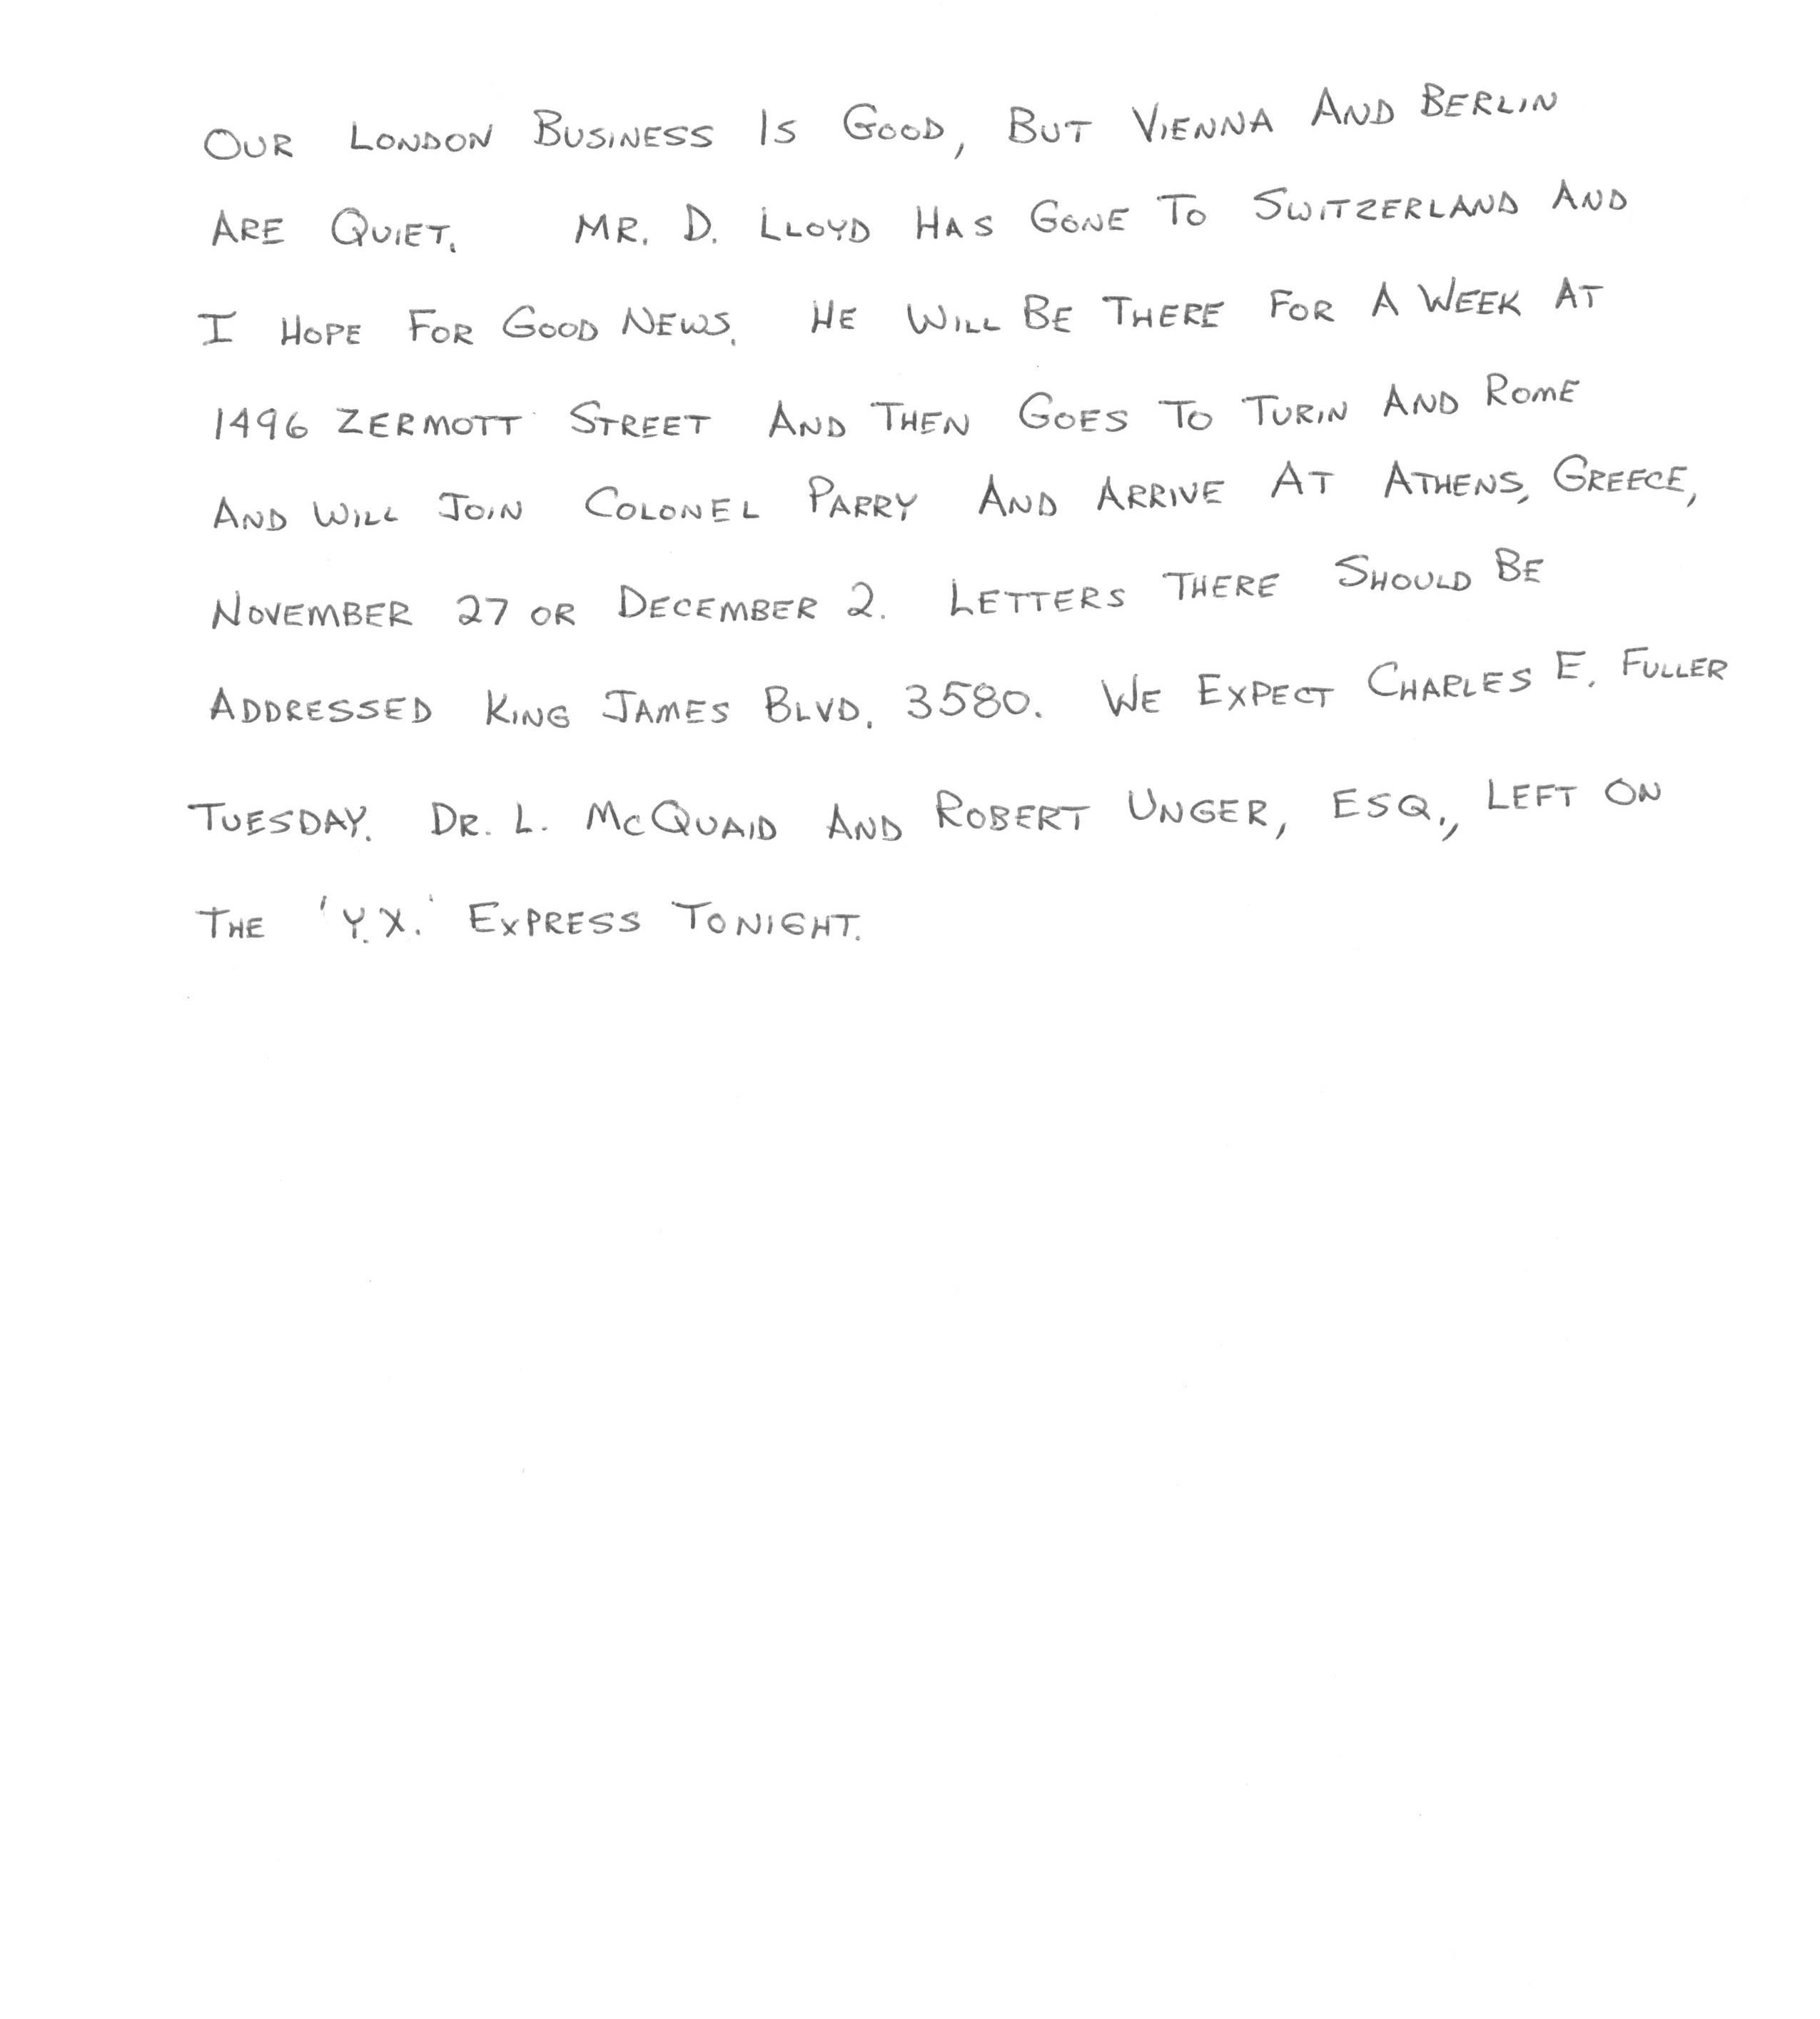 OUR LONDON BUSINESS IS GOOD, BUT VIENNA AND BERLIN
ARE QUIET. MR. D. LLOYD HAS GONE TO SWITZERLAND AND
I HOPE FOR GOOD NEWS. HE WILL BE THERE FOR A WEEK AT
1496 ZERMOTT STREET AND THEN GOES TO TURIN AND ROME
AND WILL JOIN COLONEL PARRY AND ARRIVE AT ATHENS, GREECE,
NOVEMBER 27 OR DECEMBER 2. LETTERS THERE SHOULD BE
ADDRESSED KING JAMES BLVD. 3580. WE EXPECT CHARLES E. FULLER
TUESDAY. DR. L. MCQUAID AND ROBERT UNGER, ESQ., LEFT ON
THE 'Y.X.' EXPRESS TONIGHT.